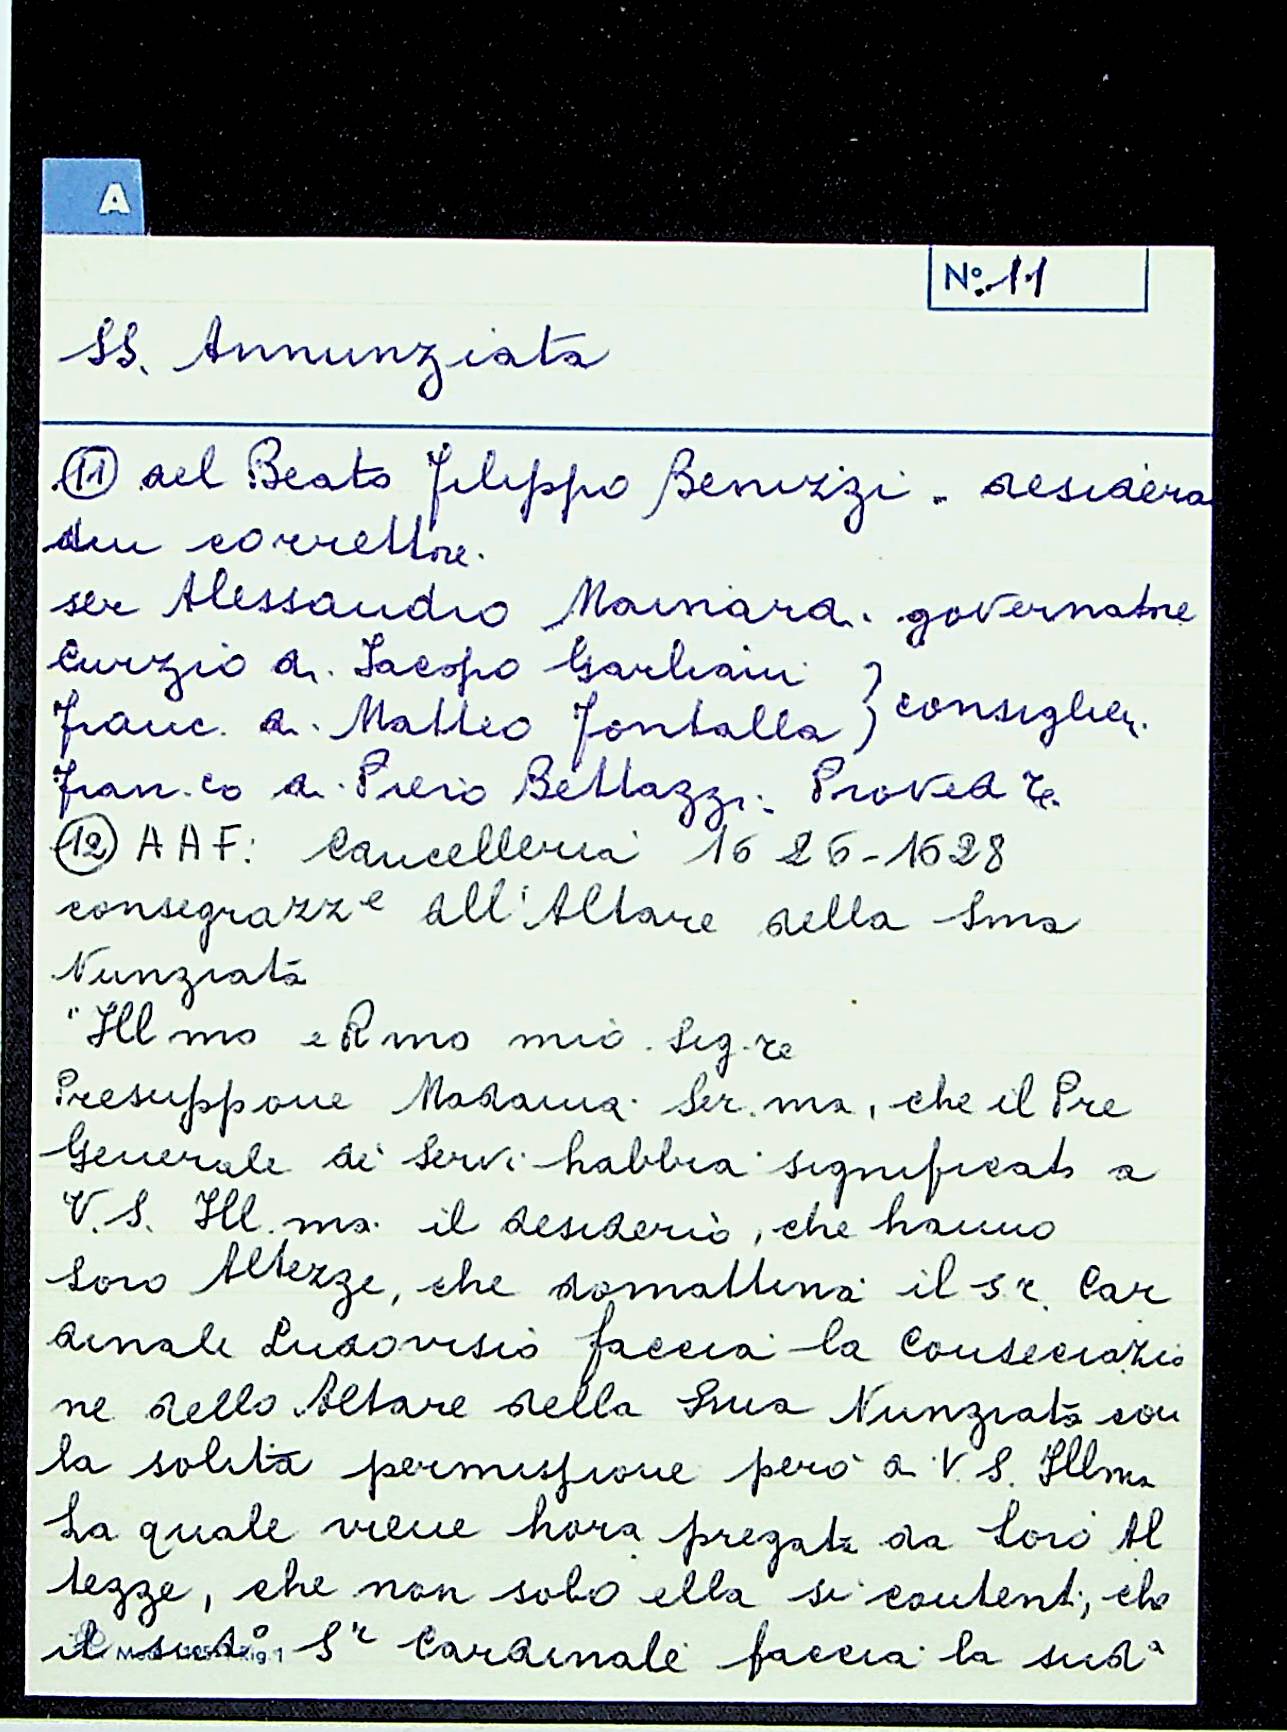 A
No. 11
SS. Annunziata
(11) del Beato Filippo Benizzi - desidera
un correttore.
ser Alessandro Mainardi governatore
Curzio di Jacopo Garbaini } consiglieri
Franc. di Matteo Fontalla
Fran.co di Piero Bettazzi Proved re
(12) AAF: Cancelleria 1626-1628
consegrazze all'Altare della Sma
Nunziata
"Ill mo e R mo mio Sig.re
Presuppone Madama Ser.ma, che il Pre
Generale de' Servi habbia significato a
V.S. Ill.ma il desiderio, che hanno
loro Altezze, che domattina il Sr. Car
dinale Ludovisio faccia la Consecrazio
ne dello Altare della Sma Nunziata con
la solita permissione però di V.S. Illma
La quale viene hora pregata da loro Al
tezze, che non solo ella si contenti, che
il sudo Sr Cardinale faccia la suda